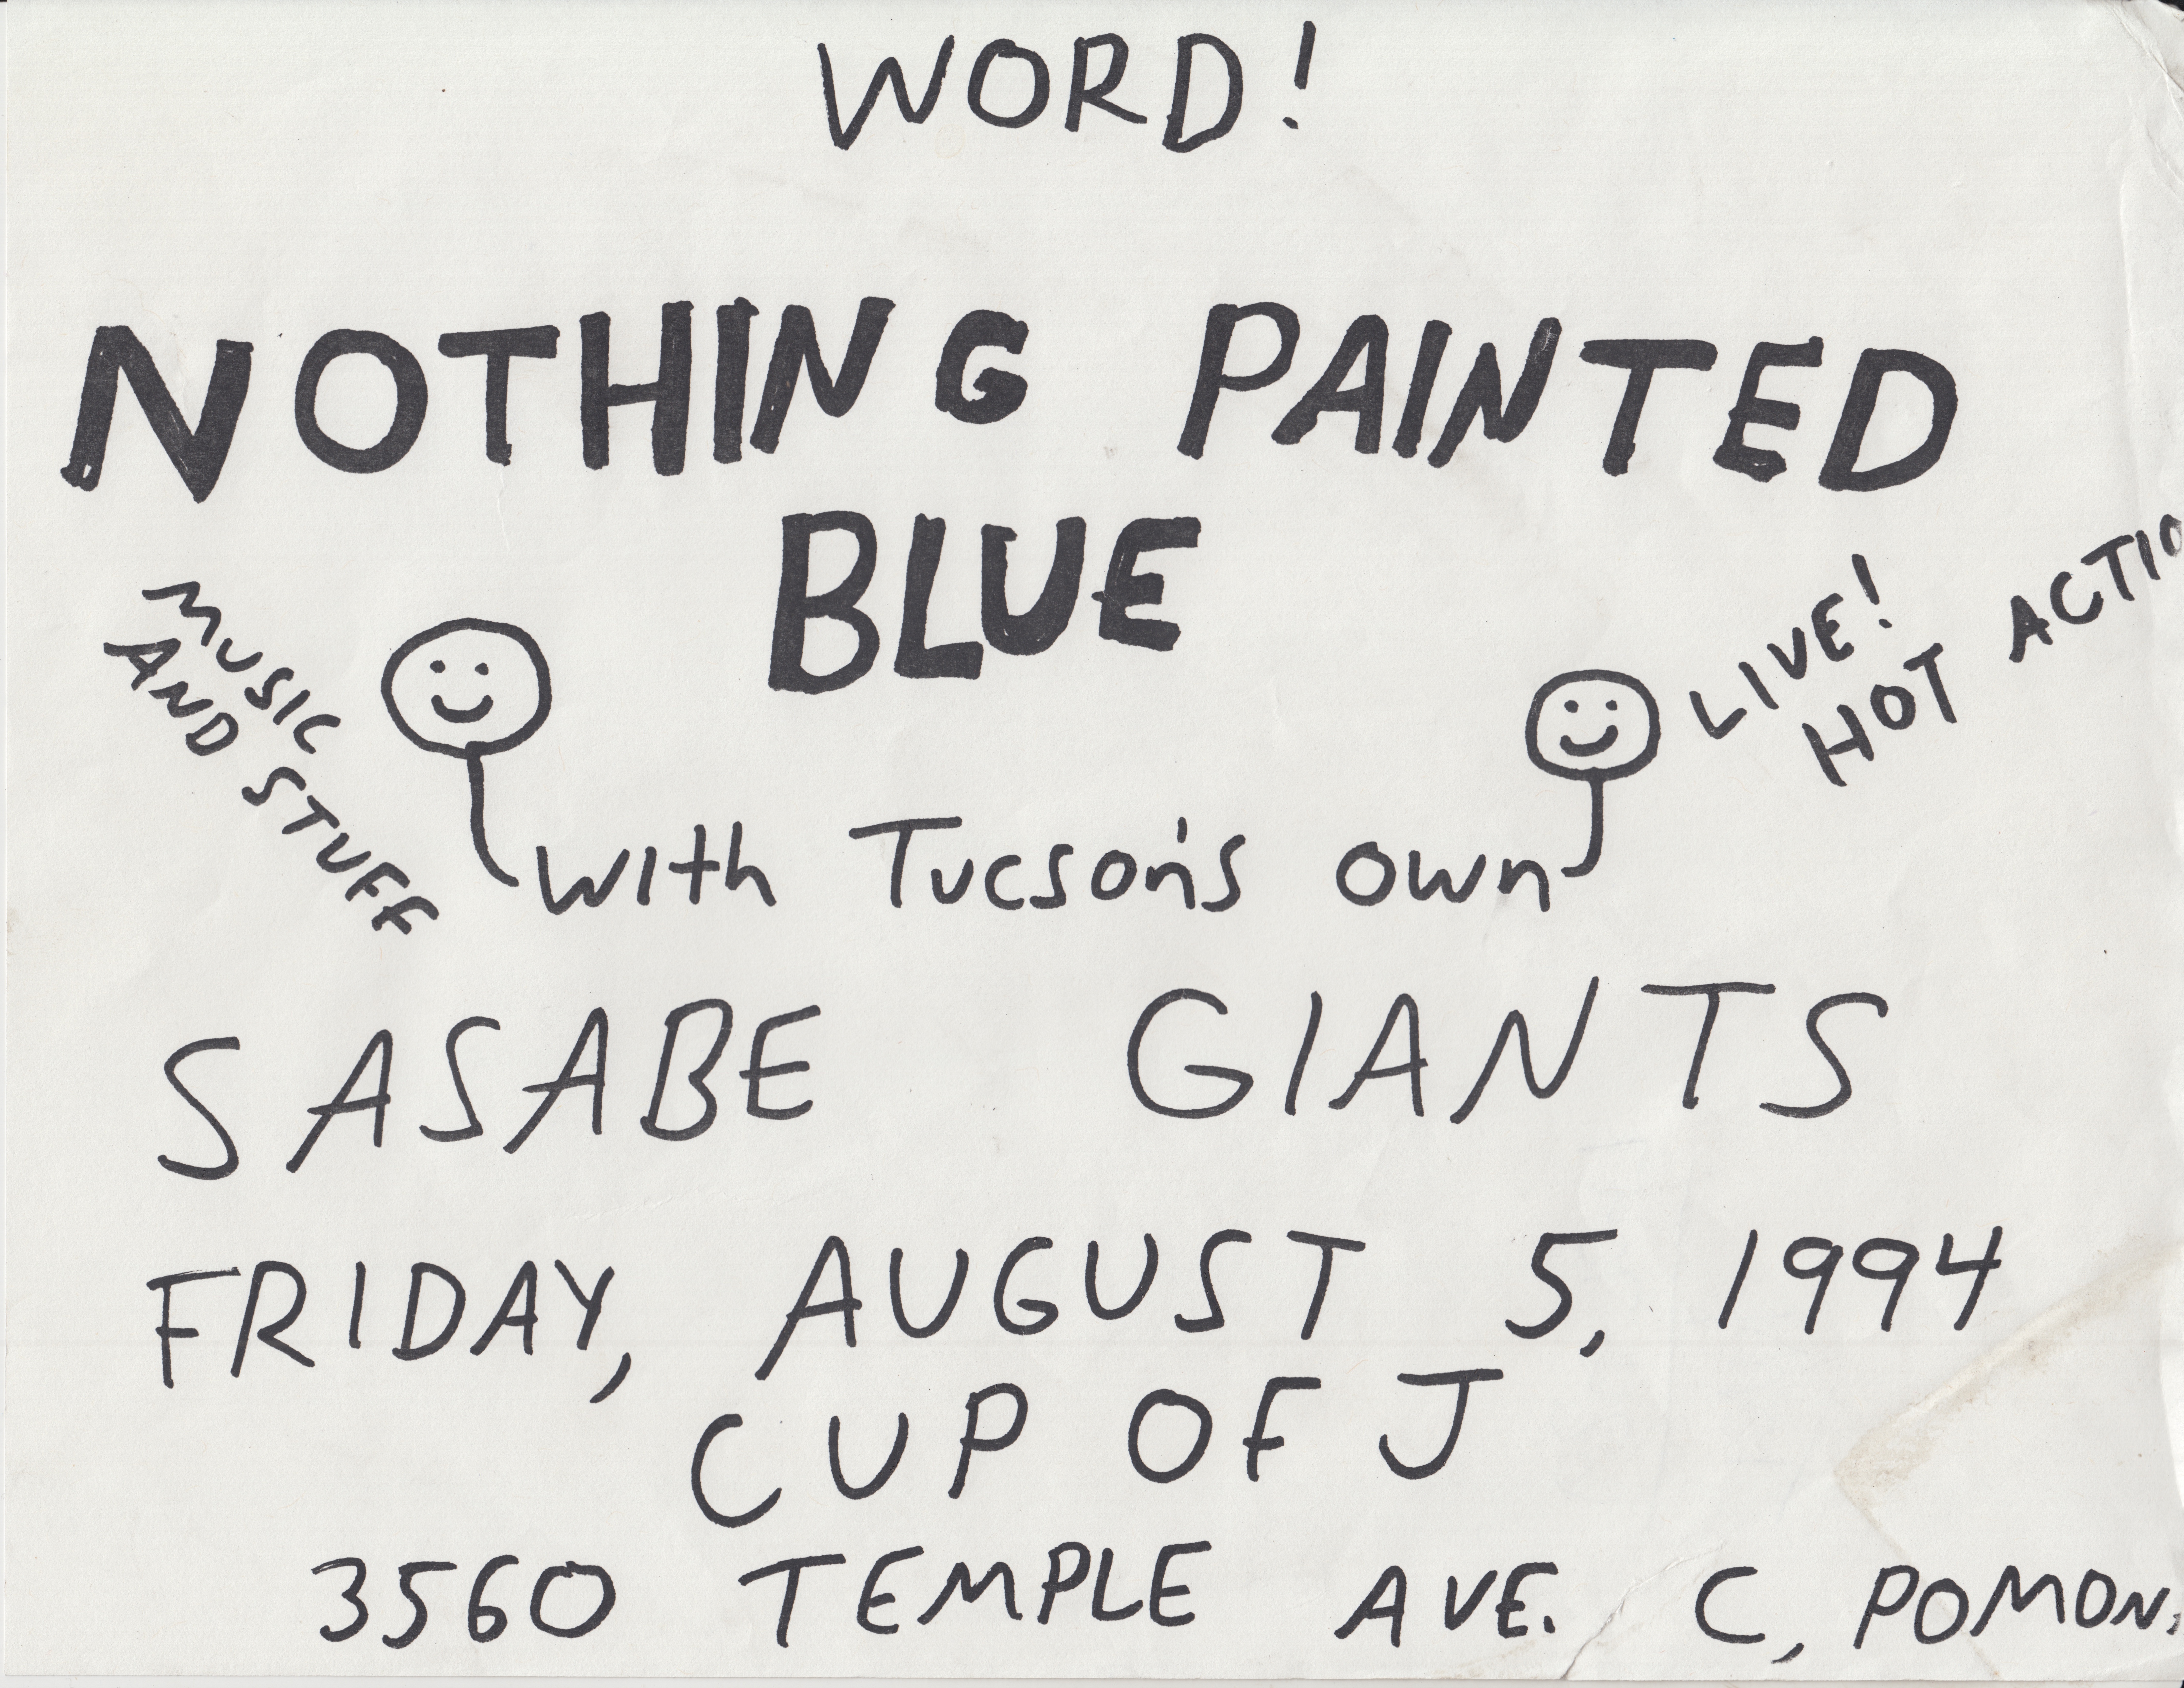 WORD!
NOTHING PAINTED
BLUE
MUSIC
AND STUFF
LIVE!
HOT ACTIO
with Tucson's own
SASABE GIANTS
FRIDAY, AUGUST 5, 1994
CUP OF J
3560 TEMPLE AVE. C, POMON